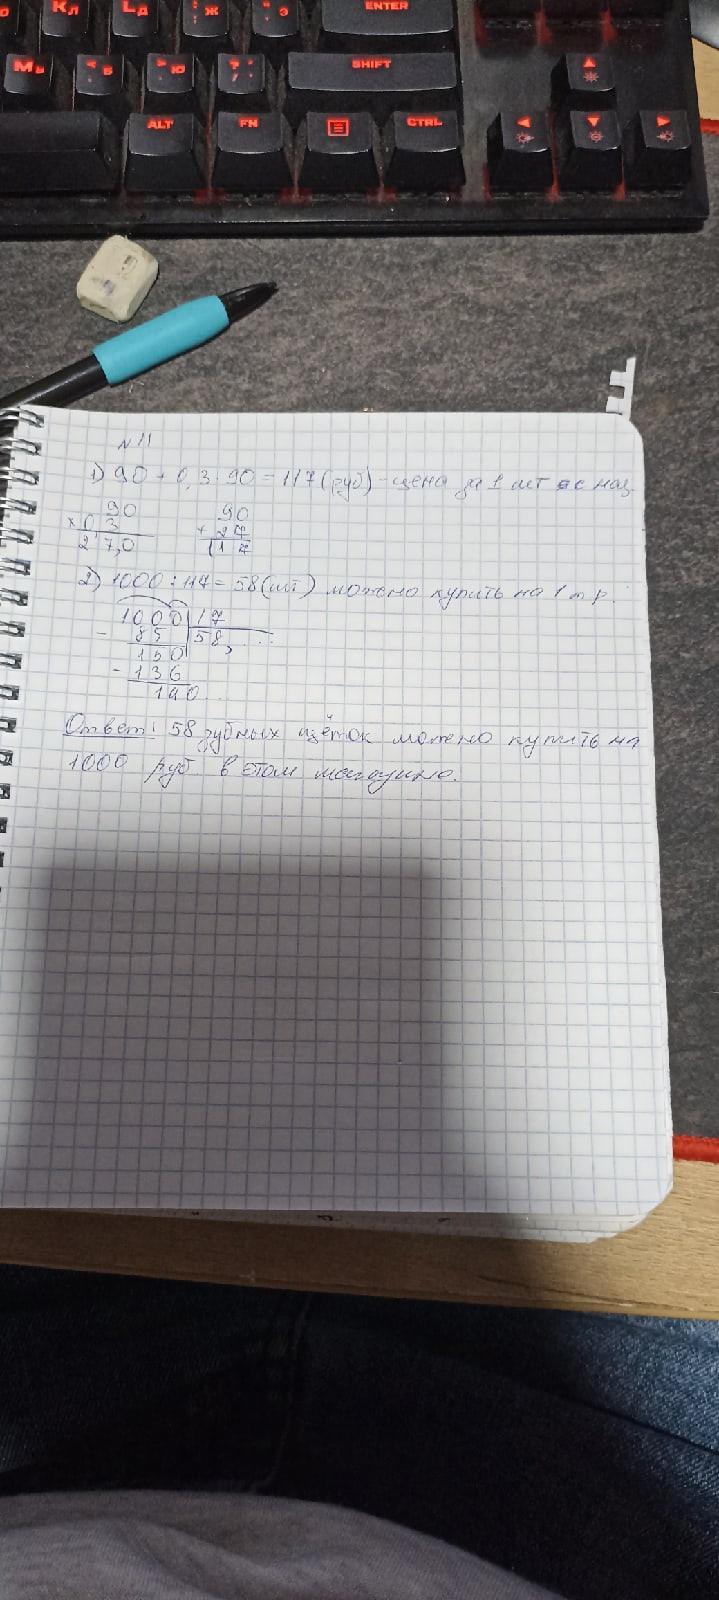 Кл Lд ; Ж " Э ENTER
Мь < Б > Ю ? SHIFT
ALT FN CTRL
N11
1) 90 + 0,3 · 90 = 117 (руб) - цена за 1 шт с нац.
90 90
× 0 3 + 27
2 7,0 117
2) 1000 : 117 = 58 (шт) можно купить на 1 т р.
1000 17
- 85 58, ...
150
- 136
140...
Ответ: 58 зубных щёток можно купить на
1000 руб в этом магазине.